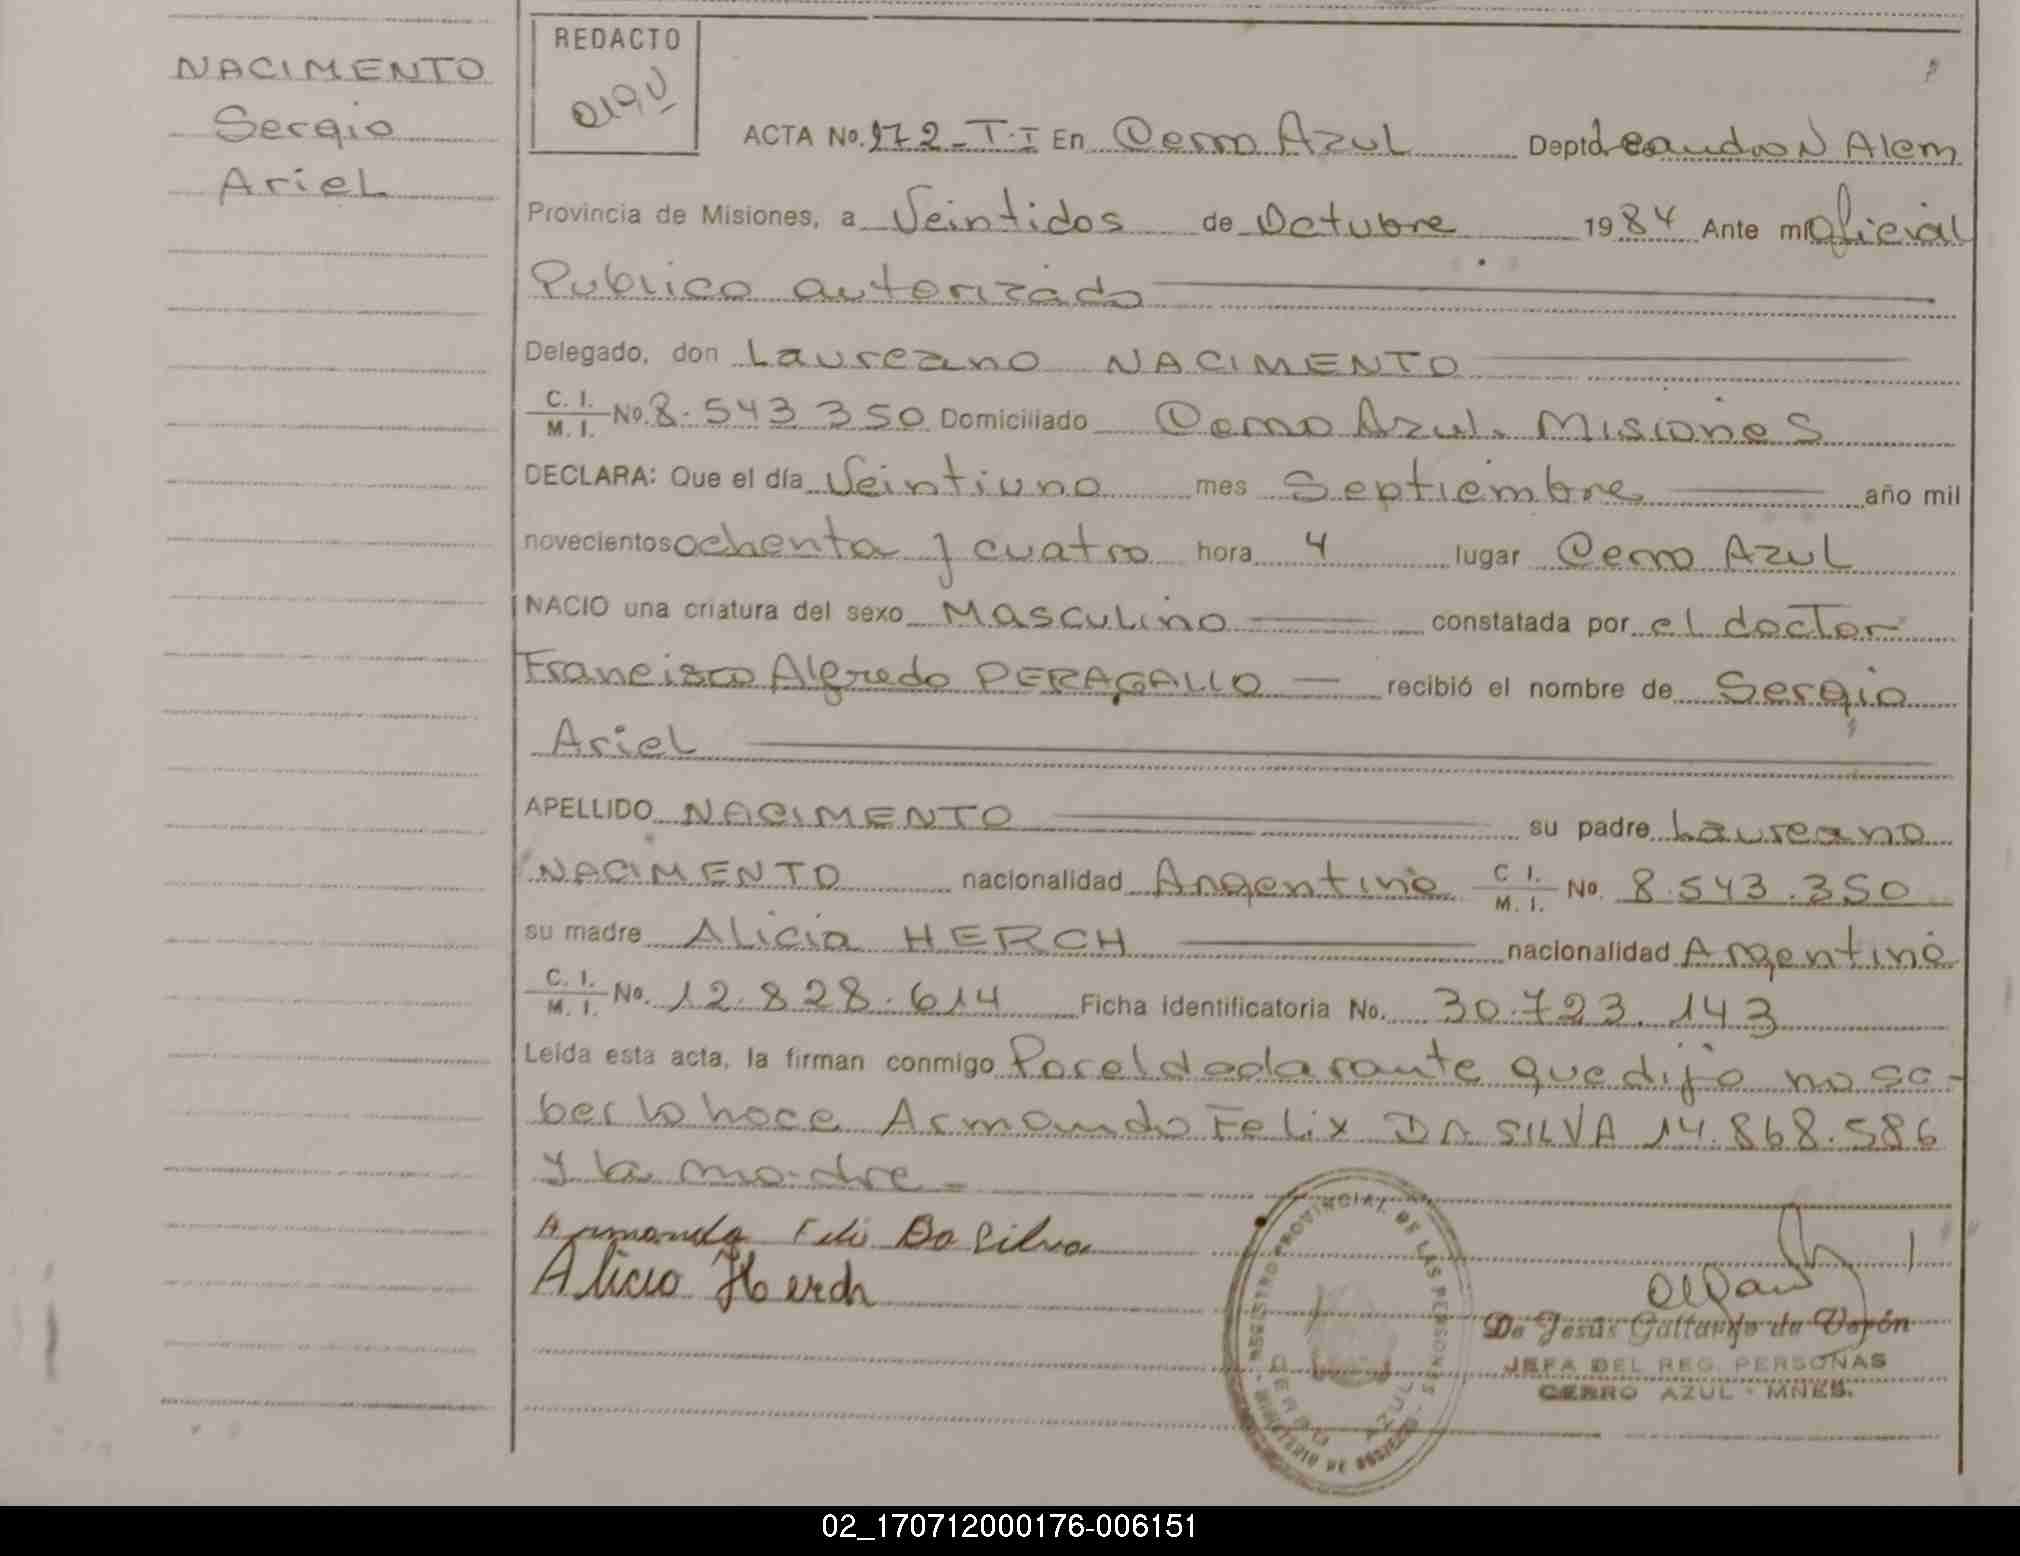 NACIMENTO
Sergio
Ariel
REDACTO
ACTA No. 972-T.I En Cerro Azul Depto Leandro N Alem
Provincia de Misiones, a Veintidos de Octubre 1984 Ante mi Oficial
Publico autorizado
Delegado, don Laureano NACIMENTO
C. I. / M. I. No. 8.543 350 Domiciliado Cerro Azul. Misiones
DECLARA: Que el día Veintiuno mes Septiembre año mil
novecientos ochenta y cuatro hora 4 lugar Cerro Azul
NACIO una criatura del sexo Masculino constatada por el doctor
Francisco Alfredo PERAGALLO recibió el nombre de Sergio
Ariel
APELLIDO NACIMENTO su padre Laureano
NACIMENTO nacionalidad Argentina C I. / M. I. No. 8.543.350
su madre Alicia HERCH nacionalidad Argentina
C. I. / M. I. No. 12.828.614 Ficha Identificatoria No. 30.723.143
Leída esta acta, la firman conmigo Por el declarante que dijo no sa-
ber lo hace Armando Felix DA SILVA 14.868.586
y la madre.-
Armando Feli Da Silva
Alicia Herch
REGISTRO PROVINCIAL DE LAS PERSONAS
CERRO AZUL
MINISTERIO DE GOBIERNO
De Jesús Gallardo de Verón
JEFA DEL REG. PERSONAS
CERRO AZUL - MNES.
02_170712000176-006151